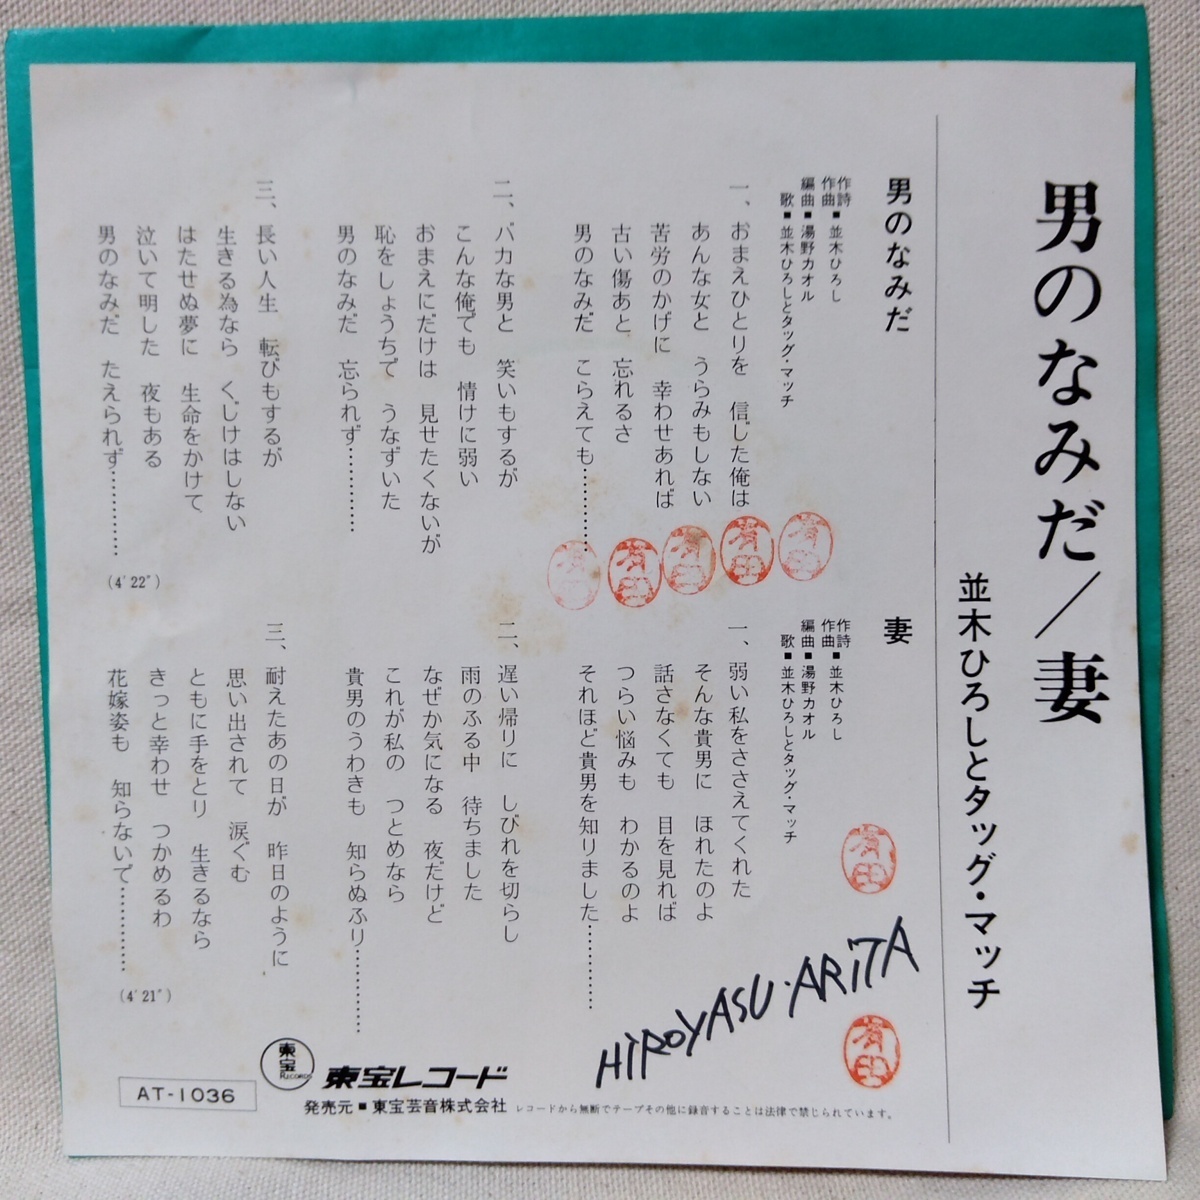 男のなみだ／妻
並木ひろしとタッグ・マッチ
男のなみだ
作詩
作曲■並木ひろし
編曲■湯野カオル
歌■並木ひろしとタッグ・マッチ
一、おまえひとりを　信じた俺は
あんな女と　うらみもしない
苦労のかげに　幸わせあれば
古い傷あと　忘れるさ
男のなみだ　こらえても…………
二、バカな男と　笑いもするが
こんな俺でも　情けに弱い
おまえにだけは　見せたくないが
恥をしょうちで　うなずいた
男のなみだ　忘られず…………
三、長い人生　転びもするが
生きる為なら　くじけはしない
はたせぬ夢に　生命をかけて
泣いて明した　夜もある
男のなみだ　たえられず…………
(4′22″)
妻
作詩
作曲■並木ひろし
編曲■湯野カオル
歌■並木ひろしとタッグ・マッチ
一、弱い私をささえてくれた
そんな貴男に　ほれたのよ
話さなくても　目を見れば
つらい悩みも　わかるのよ
それほど貴男を知りました…………
二、遅い帰りに　しびれを切らし
雨のふる中　待ちました
なぜか気になる　夜だけど
これが私の　つとめなら
貴男のうわきも　知らぬふり…………
三、耐えたあの日が　昨日のように
思い出されて　涙ぐむ
ともに手をとり　生きるなら
きっと幸わせ　つかめるわ
花嫁姿も　知らないで…………
(4′21″)
有田
有田
有田
有田
有田
有田
有田
HIROYASU・ARITA
AT-1036
東宝
RECORDS
東宝レコード
発売元■東宝芸音株式会社
レコードから無断でテープその他に録音することは法律で禁じられています。